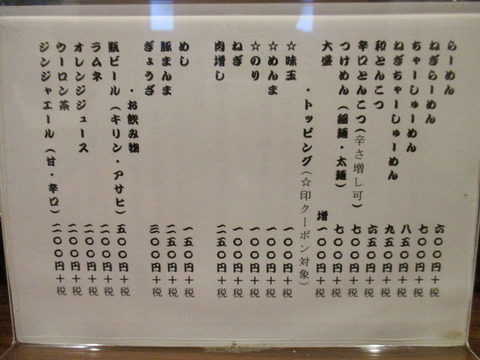 らーめん 六〇〇円+税
ねぎらーめん 七〇〇円+税
ちゃーしゅーめん 八五〇円+税
ねぎちゃーしゅーめん 九五〇円+税
和とんこつ 六五〇円+税
辛口とんこつ(辛さ増し可) 七〇〇円+税
つけめん(細麺・太麺) 七〇〇円+税
大盛 増一〇〇円+税
・トッピング(☆印クーポン対象)
☆味玉 一〇〇円+税
☆めんま 一〇〇円+税
☆のり 一〇〇円+税
ねぎ 一〇〇円+税
肉増し 二五〇円+税
めし 一五〇円+税
豚まんま 二五〇円+税
ぎょうざ 三〇〇円+税
・お飲み物
瓶ビール(キリン・アサヒ) 五〇〇円+税
ラムネ 二〇〇円+税
オレンジジュース 二〇〇円+税
ウーロン茶 二〇〇円+税
ジンジャエール(甘・辛口) 二〇〇円+税